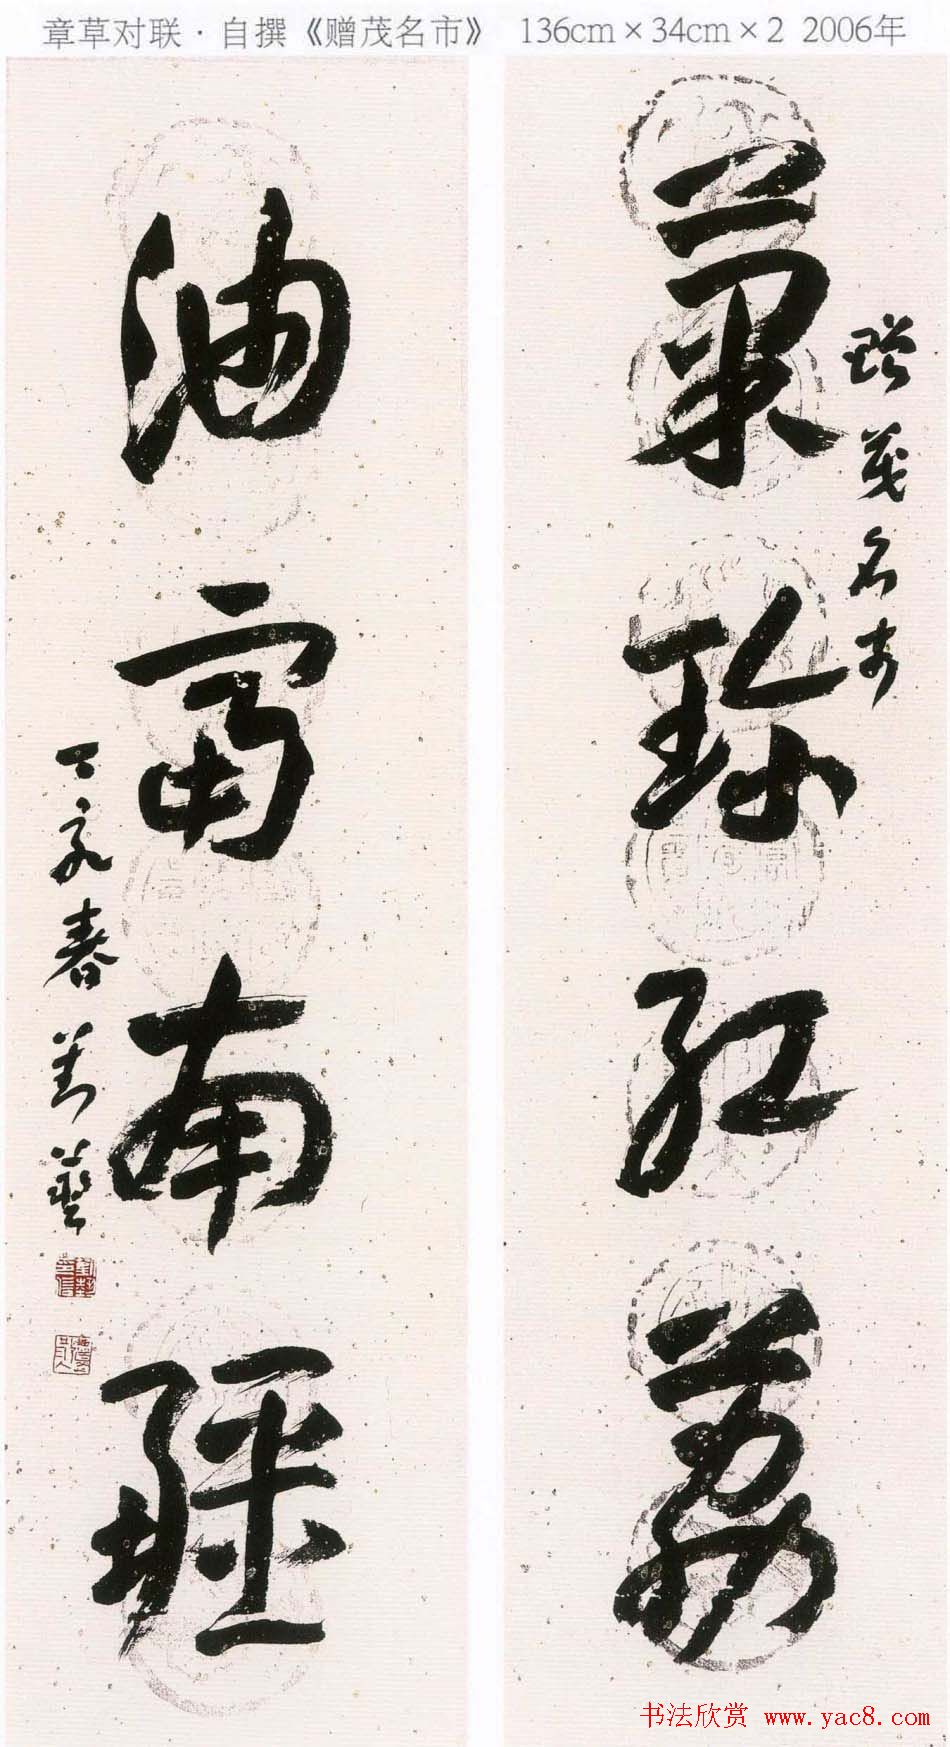 章草对联·自撰《赠茂名市》 136cm×34cm×2 2006年
贈茂名市
菓珍紅荔
油富南疆
丁亥春 劉藝
书法欣赏 www.yac8.com